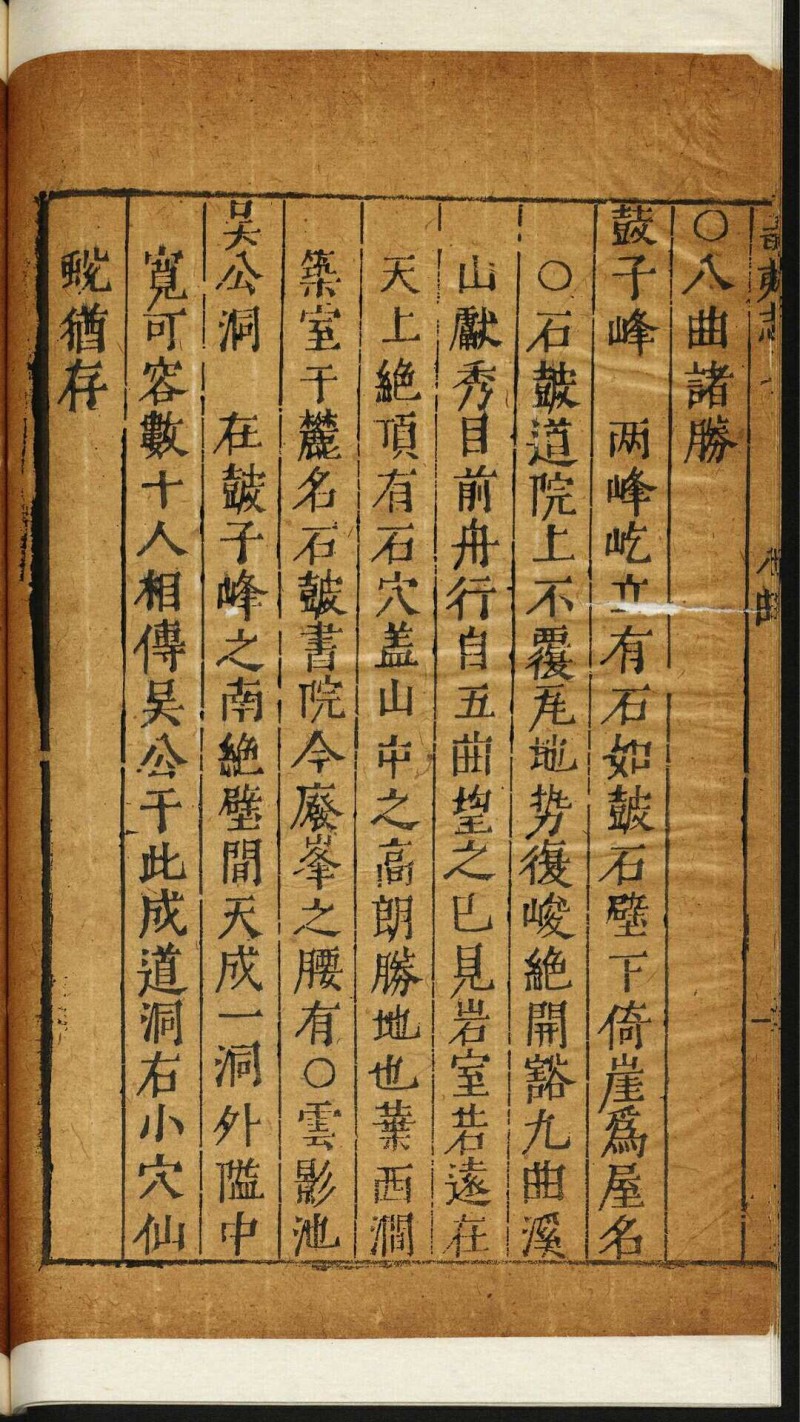 ○八曲諸勝
鼓子峰　两峰屹立有石如皷石壁下倚崖爲屋名
○石皷道院上不覆瓦地势復峻絶開豁九曲溪
山獻秀目前舟行自五曲望之已見岩室若遠在
天上絶頂有石穴盖山中之高朗勝地也葉西澗
築室于麓名石皷書院今廢峯之腰有○雲影池
吴公洞　在皷子峰之南絶壁間天成一洞外隘中
寛可容數十人相傳吴公于此成道洞右小穴仙
蜕猶存